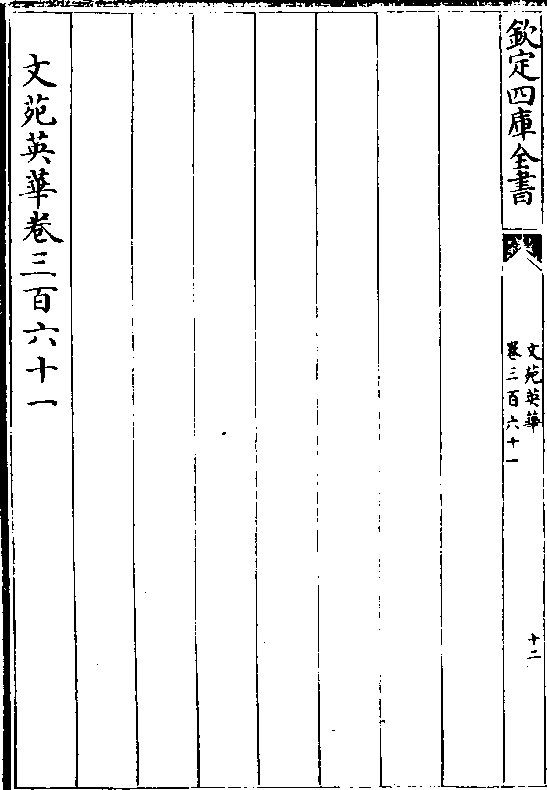 欽定四庫全書
文苑英華
卷三百六十一
十二
文苑英華卷三百六十一